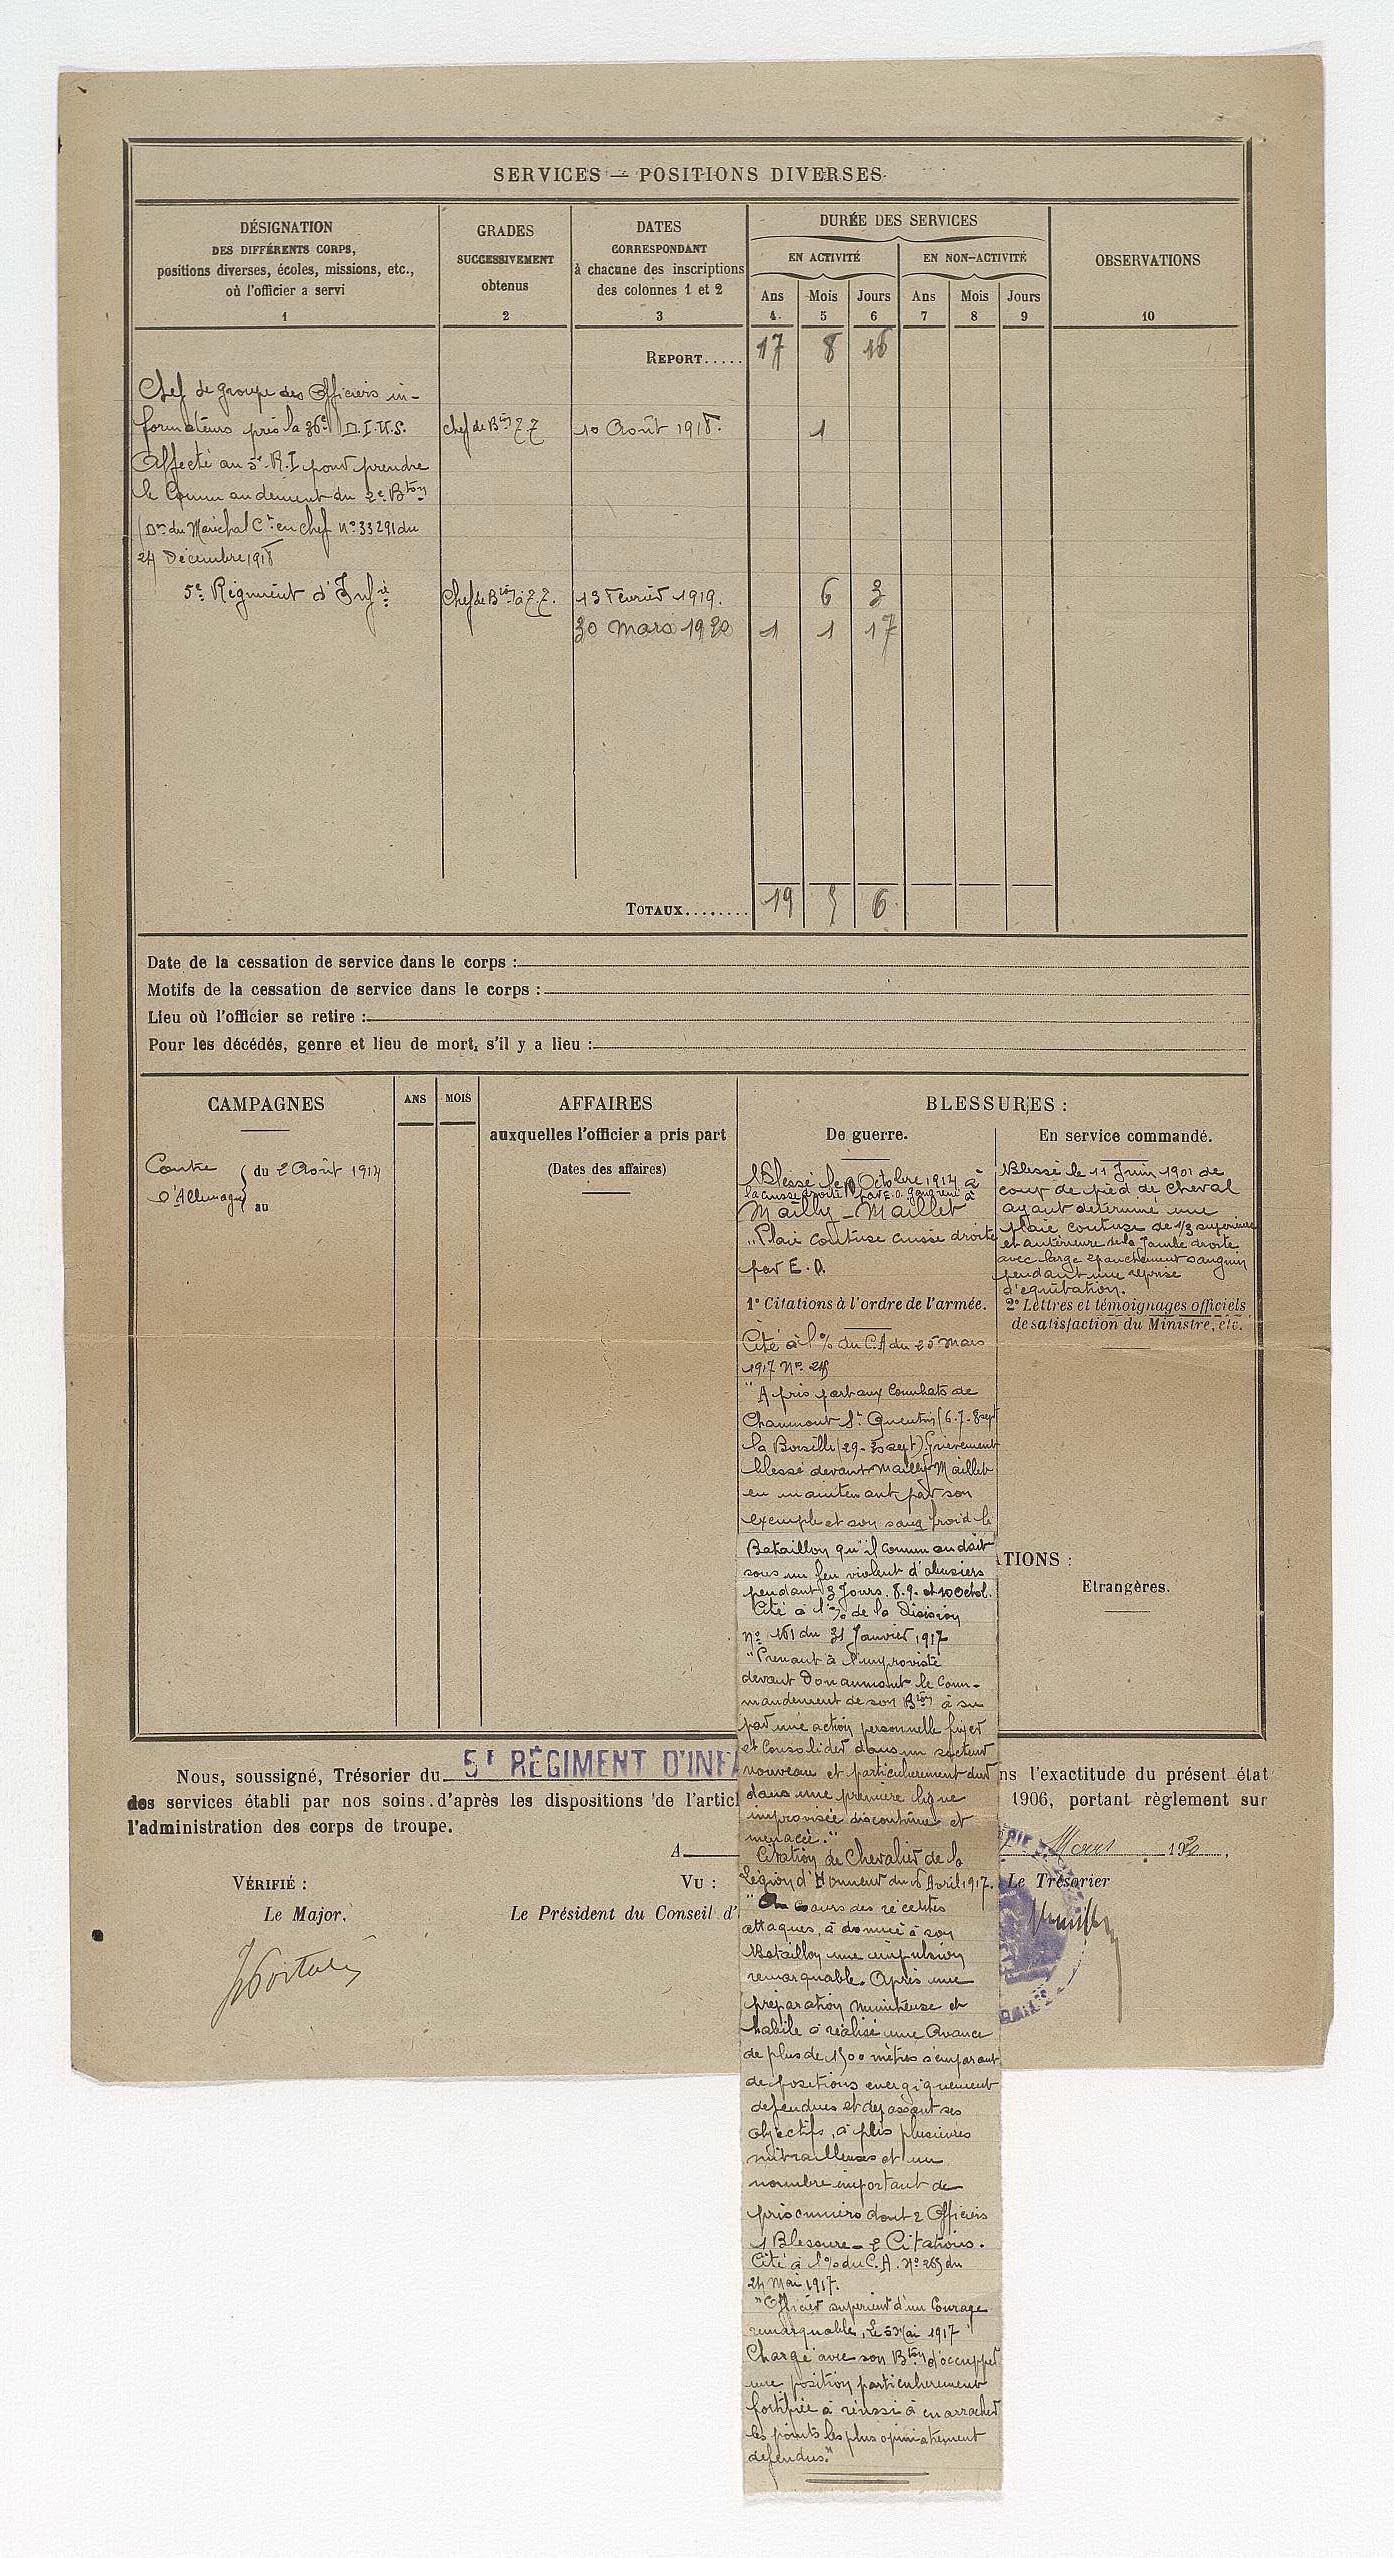 SERVICES — POSITIONS DIVERSES
DÉSIGNATION
DES DIFFÉRENTS CORPS,
positions diverses, écoles, missions, etc.,
où l'officier a servi
1
GRADES
SUCCESSIVEMENT
obtenus
2
DATES
CORRESPONDANT
à chacune des inscriptions
des colonnes 1 et 2
3
DURÉE DES SERVICES
EN ACTIVITÉ
EN NON-ACTIVITÉ
Ans Mois Jours Ans Mois Jours
4 5 6 7 8 9
OBSERVATIONS
10
REPORT..... 17 8 16
Chef de groupe des Officiers in-
formateurs près la 36e D.I.U.S. chef de Bton 10 Août 1918. 1
Affecté au 5e R.I pour prendre
le Commandement du 2e Bton
(Don du Maréchal Ct en chef No 33291 du
24 Décembre 1918
5e Régiment d'Infrie Chef de Bton 13 Février 1919. 6 3
30 mars 1920 1 1 17
TOTAUX........ 19 5 6
Date de la cessation de service dans le corps :
Motifs de la cessation de service dans le corps :
Lieu où l'officier se retire :
Pour les décédés, genre et lieu de mort, s'il y a lieu :
CAMPAGNES
ANS
MOIS
Contre
d'Allemagne
du 2 Août 1914
au
AFFAIRES
auxquelles l'officier a pris part
(Dates des affaires)
BLESSURES :
De guerre.
Blessé le Octobre 1914 à
la cuisse droite par E.O.
Mailly-Maillet
"Plaie contuse cuisse droite
par E.O.
En service commandé.
Blessé le 11 Juin 1901 de
coup de pied de cheval
ayant déterminé une
plaie contuse de 1/3 supérieure
et antérieure de la Jambe droite
avec large épanchement sanguin
pendant une reprise
d'équitation.
1° Citations à l'ordre de l'armée.
2° Lettres et témoignages officiels
de satisfaction du Ministre, etc.
Cité à l'% du C.A du 25 mars
1917 No
"A pris part aux Combats de
Chaumont St Quentin (6-7-8 sept
la Boiselle (29-30 sept) Grièvement
blessé devant Mailly Maillet
en maintenant par son
exemple et son sang froid le
Bataillon qu'il commandait
sous un feu violent d'obusiers
pendant 3 Jours. 8.9. et 10 Octob.
Cité à l'% de la Division
No 161 du 31 Janvier 1917
"Prenant à l'improviste
devant Douaumont le Com-
mandement de son Bton a su
par une action personnelle fixer
et Consolider dans un secteur
nouveau et particulièrement dur
dans une première ligne
improvisée discontinue et
menacée."
Citation de Chevalier de la
Légion d'Honneur du 16 Avril 1917.
"Au Cours des récentes
attaques, a donné à son
Bataillon une impulsion
remarquable. Après une
préparation minutieuse et
habile a réalisé une Avance
de plus de 1500 mètres s'emparant
de positions énergiquement
défendues et dépassant ses
objectifs, a pris plusieurs
mitrailleuses et un
nombre important de
prisonniers dont 2 Officiers
1 Blessure - 2 Citations.
Cité à l'% du C.A. No 265 du
24 Mai 1917.
"Officier supérieur d'un Courage
remarquable, Le 5 Mai 1917
Chargé avec son Bton d'occupper
une position particulièrement
fortifiée a réussi à en arracher
les points les plus opiniatrement
défendus."
ATIONS :
Etrangères.
Nous, soussigné, Trésorier du 5e RÉGIMENT D'INFA ns l'exactitude du présent état
des services établi par nos soins d'après les dispositions de l'articl 1906, portant règlement sur
l'administration des corps de troupe.
A Mars 1920.
VÉRIFIÉ :
Le Major.
VU :
Le Président du Conseil d'
Le Trésorier